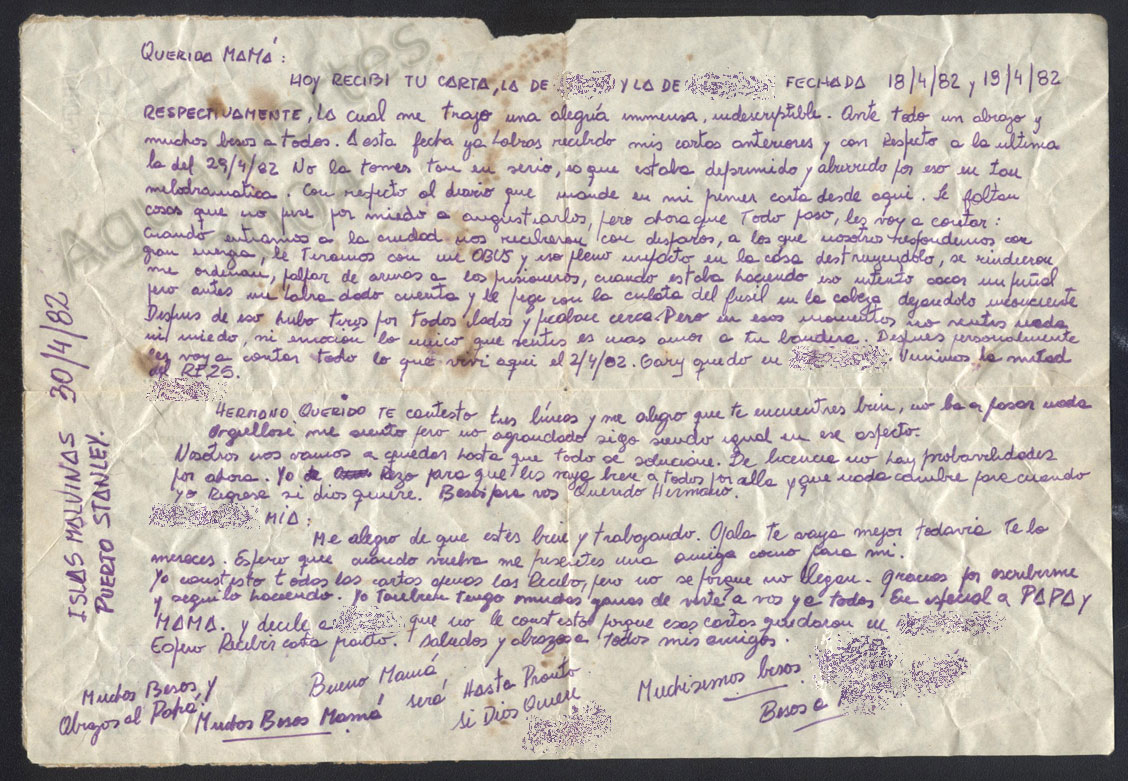 QUERIDA MAMÁ:
HOY RECIBI TU CARTA, LA DE Y LA DE FECHADA 18/4/82 y 19/4/82
RESPECTIVAMENTE, la cual me trajo una alegría immensa, indescriptible. Ante todo un abrazo y
muchos besos a todos. A esta fecha ya habras recibido mis cartas anteriores y con respecto a la ultima
la del 29/4/82 No la tomes tan en serio, es que estaba deprimido y aburrido por eso en tan
melodramatica. Con respecto al diario que mande en mi primer carta desde aqui. le faltan
cosas que no puse por miedo a angustiarlos, pero ahora que todo paso, les voy a contar:
cuando entramos a la ciudad nos recibieron con disparos, a los que nosotros respondemos con
gran energia, le tiramos con un OBUS y hizo pleno impacto en la casa destruyendolo, se rindieron
me ordenan, palpar de armas a los prisioneros, cuando estaba haciendo eso intento sacar un puñal
pero antes me habia dado cuenta y le pege con la culata del fusil en la cabeza dejandolo inconciente
Despues de eso hubo tiros por todos lados y cerca. Pero en esos momentos no sentis nada
ni miedo, ni emocion lo unico que sentis es mas amor a tu bandera. Despues personalmente
les voy a contar todo lo que vivi aqui el 2/4/82. Gary quedo en Vinimos la mitad
del RI25.
HERMANO QUERIDO TE contesto tus líneas y me alegro que te encuentres bien, no va a pasar nada
orgulloso me siento pero no agrandado sigo siendo igual en ese aspecto.
Nosotros nos vamos a quedar hasta que todo se solucione. De licencia no hay probabilidades
por ahora. Yo Rezo para que les vaya bien a todos por alla y que nada cambie para cuando
yo Regrese si dios quiere. Besos para vos Querido Hermano.
MIA:
Me alegro de que estes bien y trabajando. Ojala te vaya mejor todavia te lo
mereces. Espero que cuando vuelva me presentes una amiga como para mi.
Yo constesto todas las cartas apenas las Recibo, pero no se porque no llegan. Gracias por escribirme
y segui lo haciendo. Yo tambien tengo muchas ganas de verte a vos y a todos En especial a PAPA y
MAMA. y decile a que no le constesto porque esas cartas quedaron en
Espero Recibir carta pronto. Saludos y abrazos a todos mis amigos.
Muchos Besos, y
Abrazos al Papá,
Bueno Mamá
será Hasta Pronto
si Dios Quiere
Muchos Besos Mamá
Muchisimos besos
Besos a
ISLAS MALVINAS 30/4/82
PUERTO STANLEY.